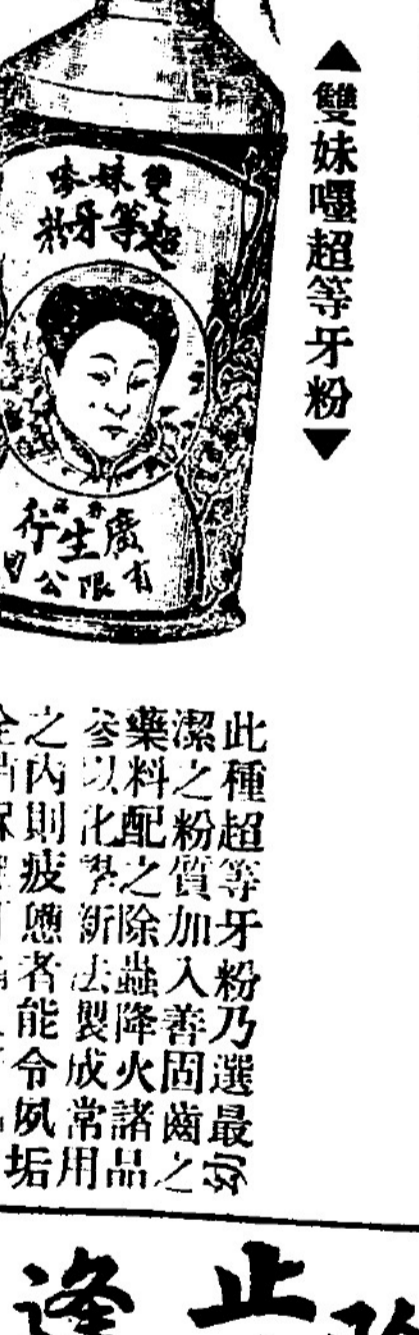 ▲雙妹嚜超等牙粉▼
雙妹嘜
超等牙粉
廣生行
有限公司
此種超等牙粉乃選最幼
潔之粉質加入善固齒之
藥料配之除蟲降火諸品
參以化學新法製成常用
之內則疲憊者能令夙垢
止
逢